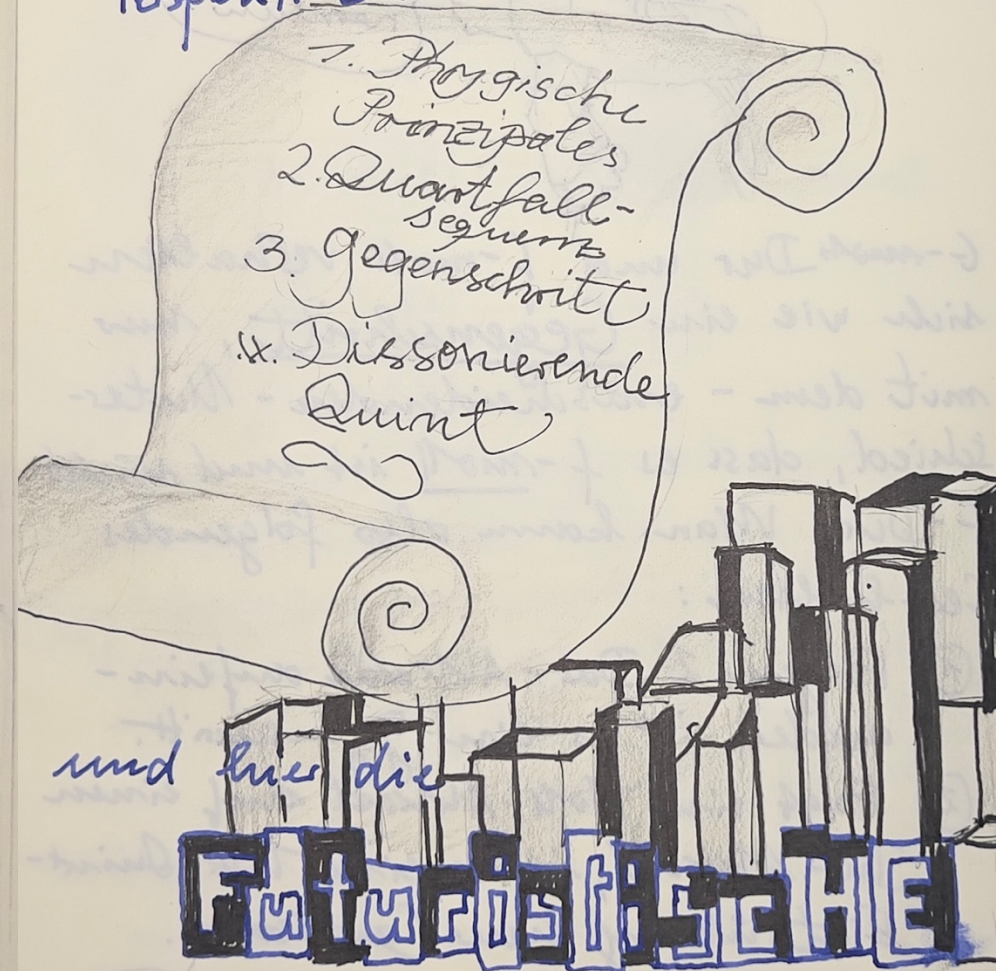 1. Phrygische
Prinzipales
2. Quartfall-
sequenz
3. Gegenschritt
4. Dissonierende
Quint
und hier die
FuturistiScHE